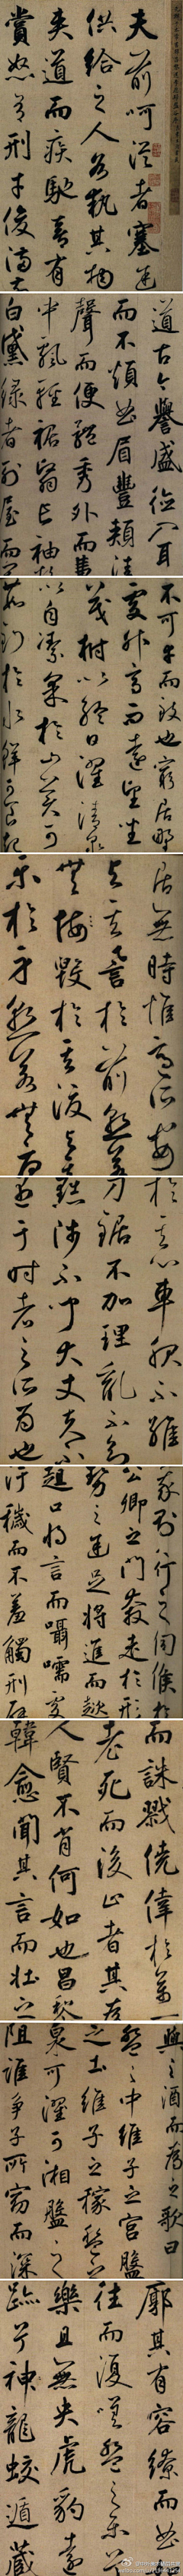 夫前呵從者塞途
供給之人各執其物
夾道而疾馳喜有
賞怒有刑才俊滿前
道古今譽盛德入耳
而不煩曲眉豐頰清
聲而便體秀外而惠
中飄輕裾翳長袖粉
白黛綠者列屋而閒
不可幸而致也窮居野
處升高而遠望坐
茂樹以終日濯清泉
以自潔採於山美可
茹釣於水鮮可食起
居無時惟適所安
與其譽於前孰若
無悔毀於其後與其
樂於身孰若無憂
於其心車服不維
刀鋸不加理亂不知
黜陟不聞大丈夫不
遇于時者之所為也
我則行之伺候於
公卿之門奔走於形
勢之途足將進而趑
趄口將言而囁嚅處
汙穢而不羞觸刑辟
而誅戮僥倖於萬一
老死而後止者其於
人賢不肖何如也昌黎
韓愈聞其言而壯之
與之酒而為之歌曰
盤之中維子之宮盤
之土維子之稼盤之
泉可濯可湘盤之
阻誰爭子所窈而深
廓其有容繚而曲如
往而復嗟盤之樂兮
樂且無央虎豹遠
跡兮神龍蛟遁藏